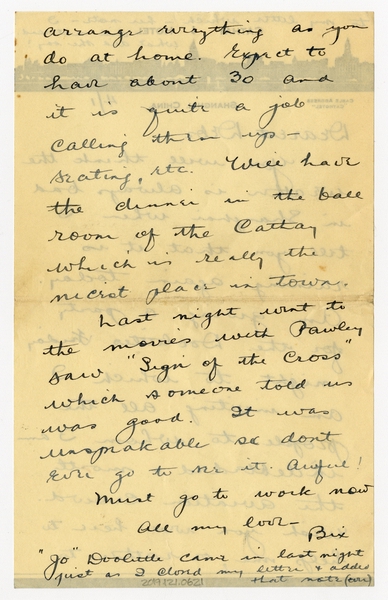 arrange everything as you
do at home. Expect to
have about 30 and
it is quite a job
calling them up –
seating, etc. Will have
the dinner in the ball
room of the Cathay
which is really the
nicest place in town.
Last night went to
the movies with Pawley
saw "Sign of the Cross"
which someone told us
was good. It was
unspeakable so don't
ever go to see it. Awful!
Must go to work now
All my love –
Bix
"Jo" Doolittle came in last night
just as I closed my letter & added
that note (over)
2019.121.0621